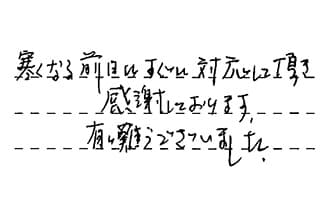 寒くなる前にすぐに対応して頂き
感謝しております。
有難うございました。